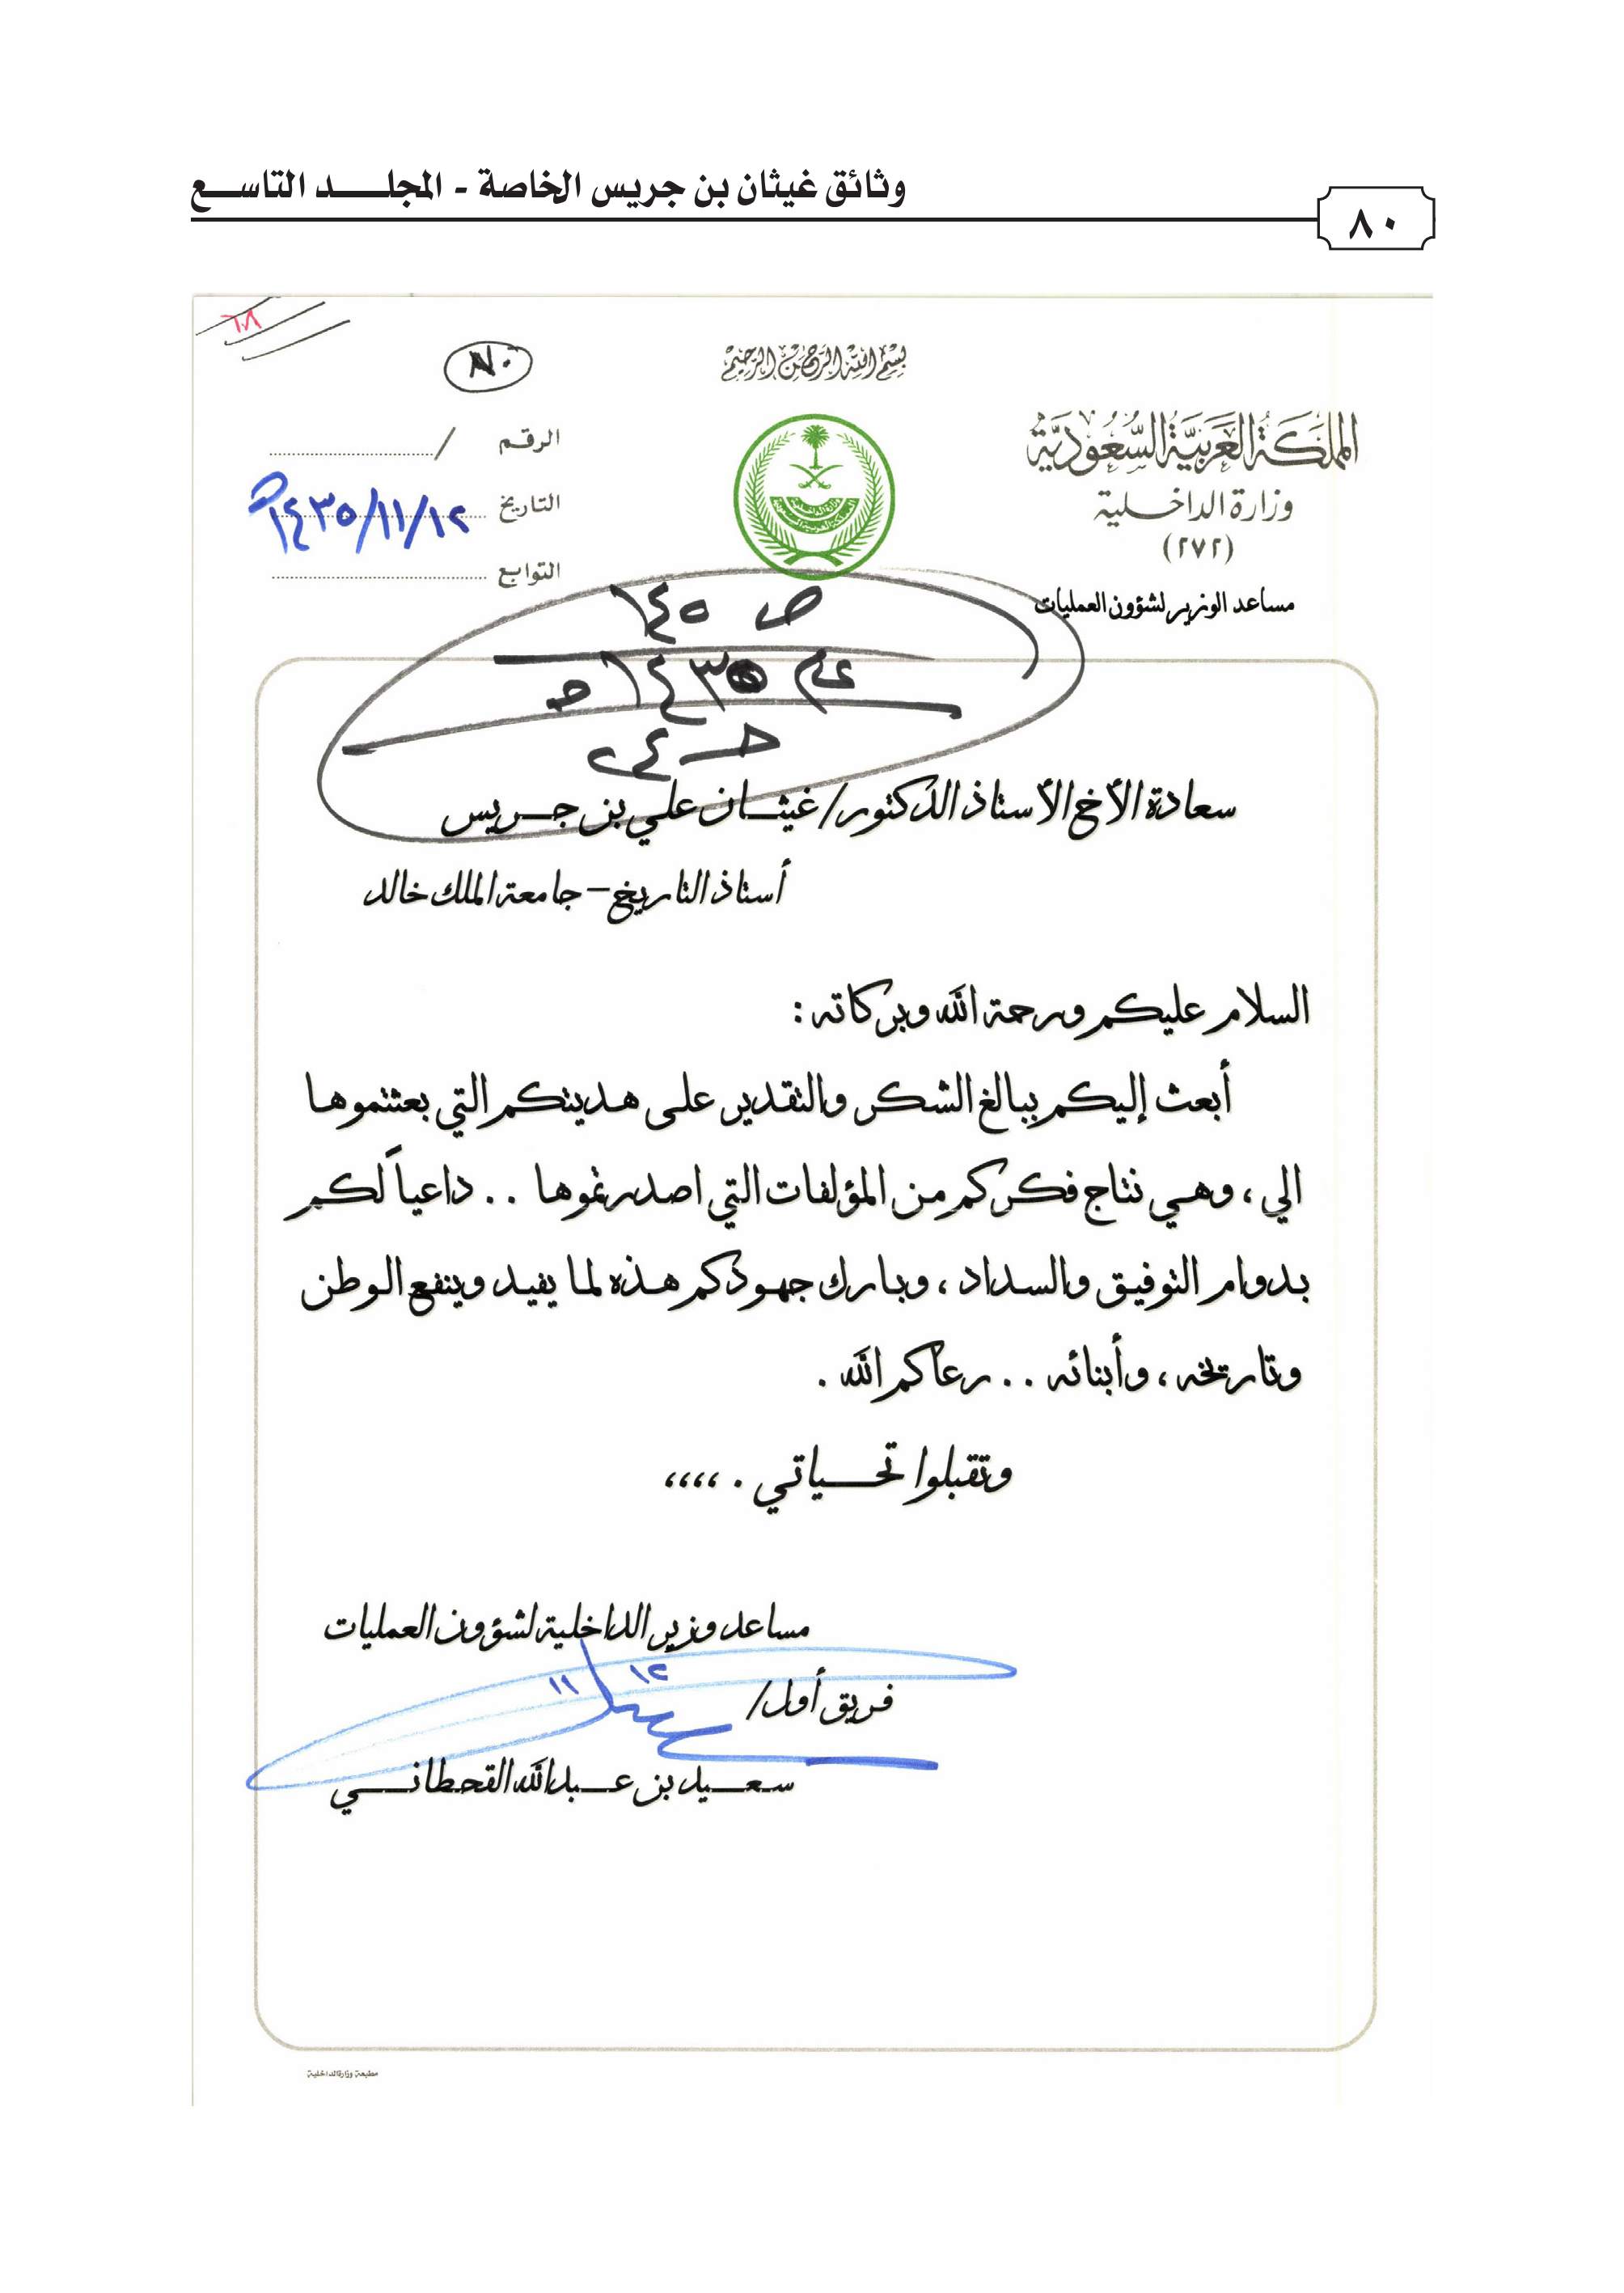 وثائق غيثان بن جريس الخاصة - المجلد التاسع
٨٠
بسم الله الرحمن الرحيم
المملكة العربية السعودية
وزارة الداخلية
(٢٧٢)
مساعد الوزير لشؤون العمليات
الرقم /
التاريخ ١٤٣٥/١١/١٢هـ
التوابع
ص ١٤٥
عام ١٤٣٥هـ
سعادة الأخ الأستاذ الدكتور/ غيثان علي بن جريس
أستاذ التاريخ – جامعة الملك خالد
السلام عليكم ورحمة الله وبركاته :
أبعث إليكم ببالغ الشكر والتقدير على هديتكم التي بعثتموها
الي ، وهي نتاج فكركم من المؤلفات التي اصدرتموها . . داعياً لكم
بدوام التوفيق والسداد ، وبارك جهودكم هذه لما يفيد وينفع الوطن
وتاريخه ، وأبنائه . . رعاكم الله .
وتقبلوا تحياتي . ،،،،
مساعد وزير الداخلية لشؤون العمليات
١٢ ١١
فريق أول/
سعيد بن عبدالله القحطاني
مطبعة وزارة الداخلية